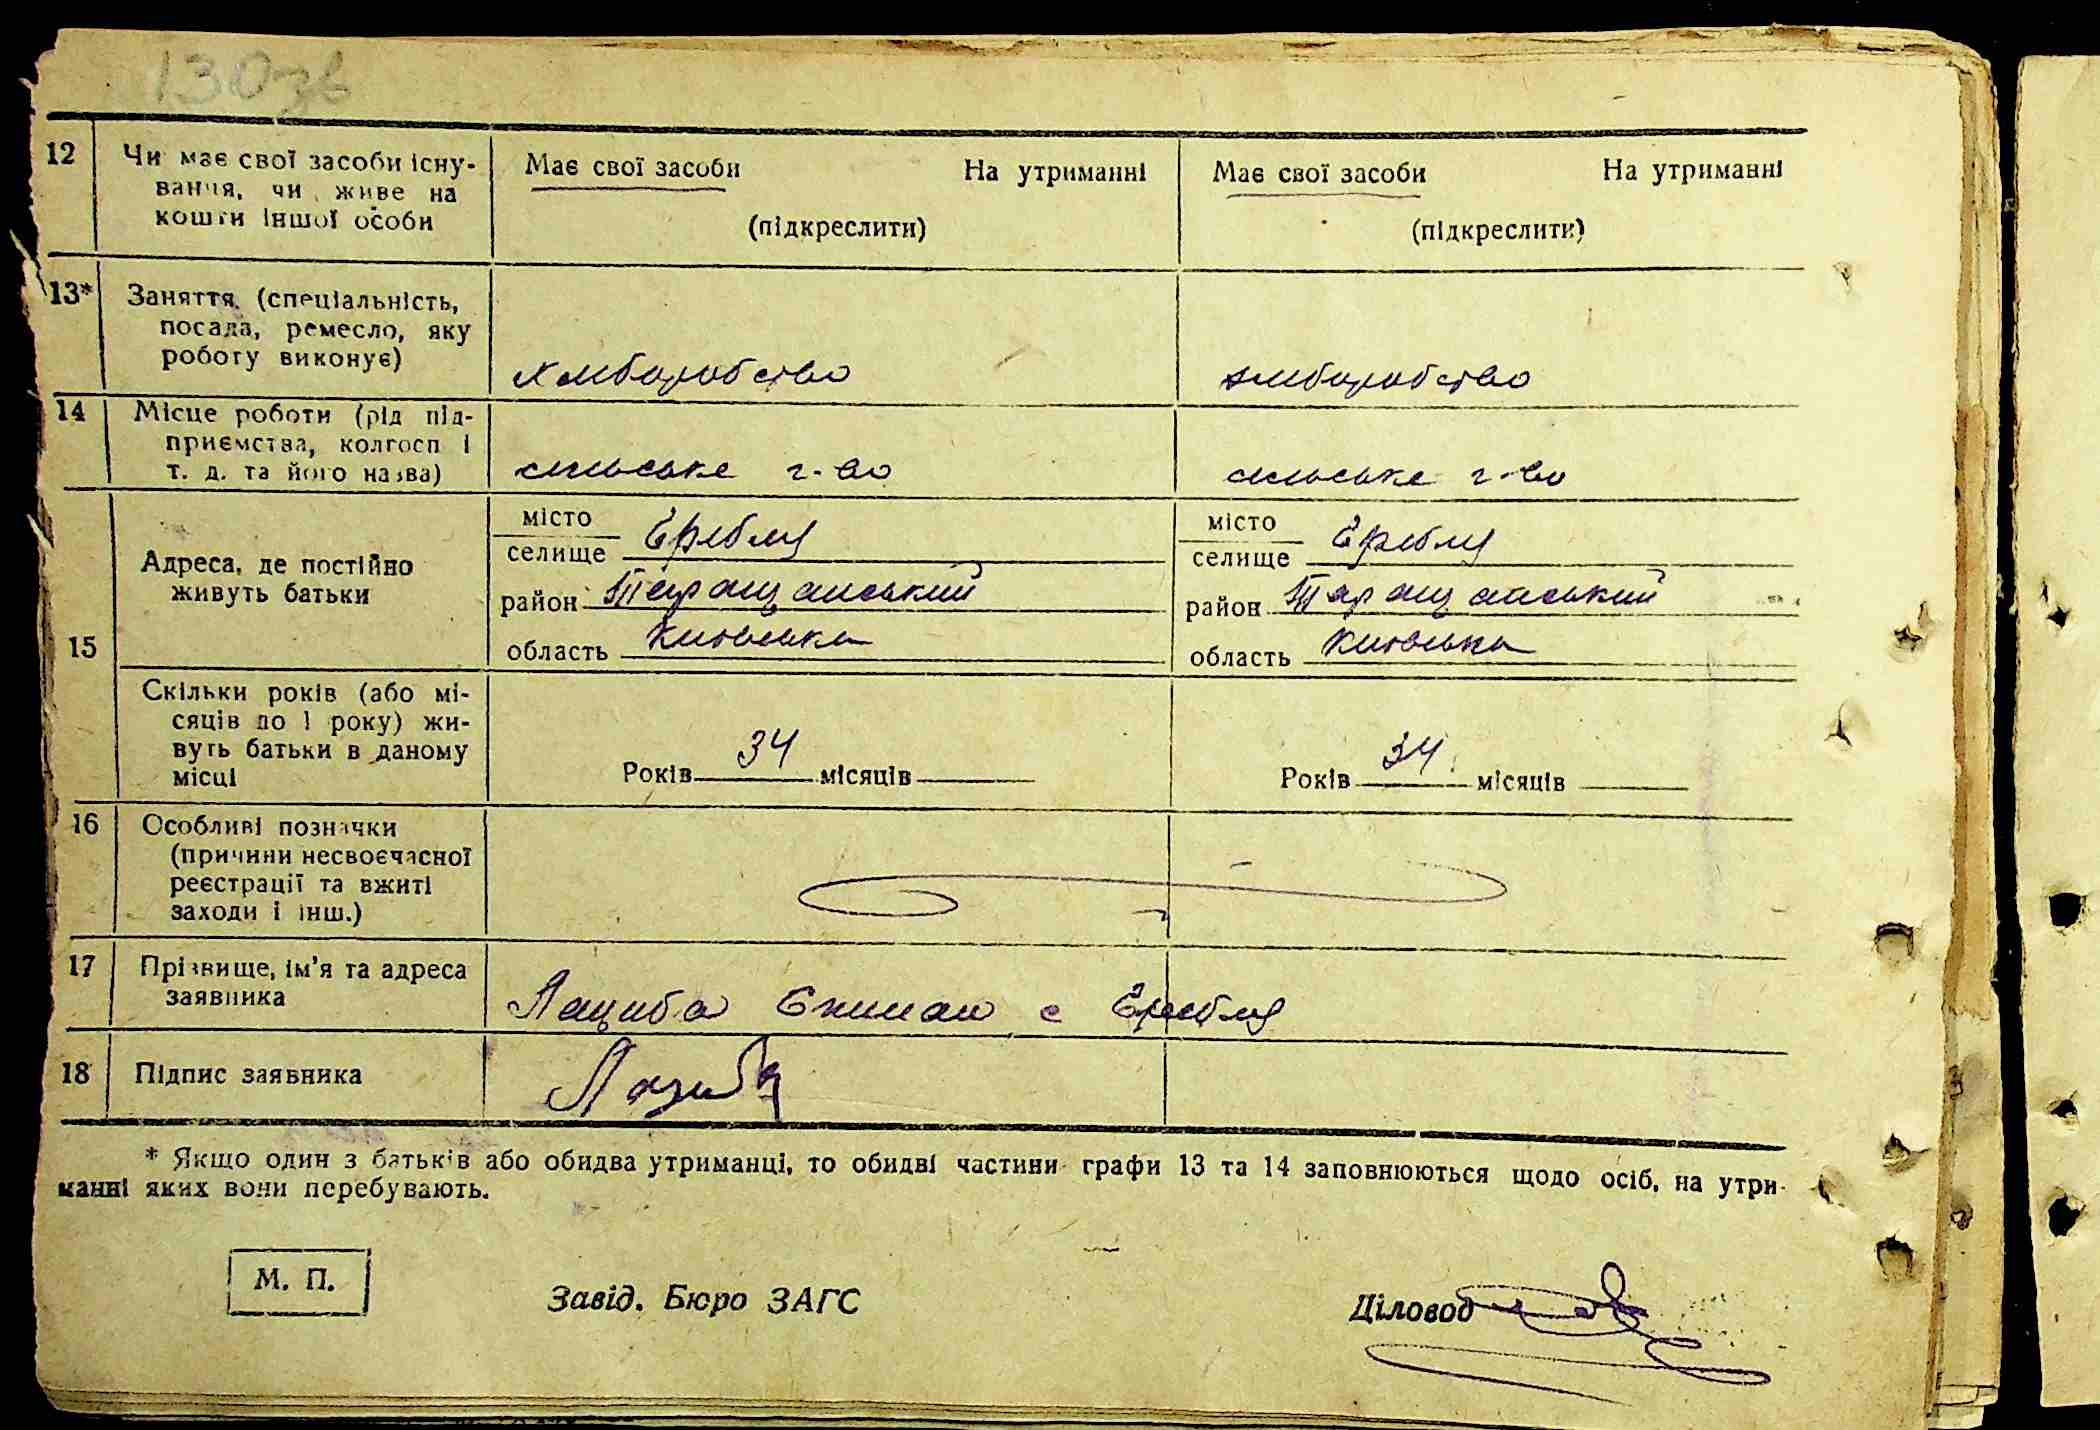 130зв
12 Чи має свої засоби існу-
вання, чи живе на
кошти іншої особи
Має свої засоби На утриманні
(підкреслити)
Має свої засоби На утриманні
(підкреслити)
13* Заняття (спеціальність,
посада, ремесло, яку
роботу виконує)
хліборобство
хліборобство
14 Місце роботи (рід під-
приємства, колгосп і
т. д. та його назва)
сільське г-во
сільське г-во
15
Адреса, де постійно
живуть батьки
місто
селище
район Таращанський
область Київська
місто
селище
район Таращанський
область Київська
Скільки років (або мі-
сяців до 1 року) жи-
вуть батьки в даному
місці
Років 34 місяців
Років 34 місяців
16 Особливі позначки
(причини несвоєчасної
реєстрації та вжиті
заходи і інш.)
17 Прізвище, ім'я та адреса
заявника
с
18 Підпис заявника
* Якщо один з батьків або обидва утриманці, то обидві частини графи 13 та 14 заповнюються щодо осіб, на утри-
манні яких вони перебувають.
М. П.
Завід. Бюро ЗАГС
Діловод